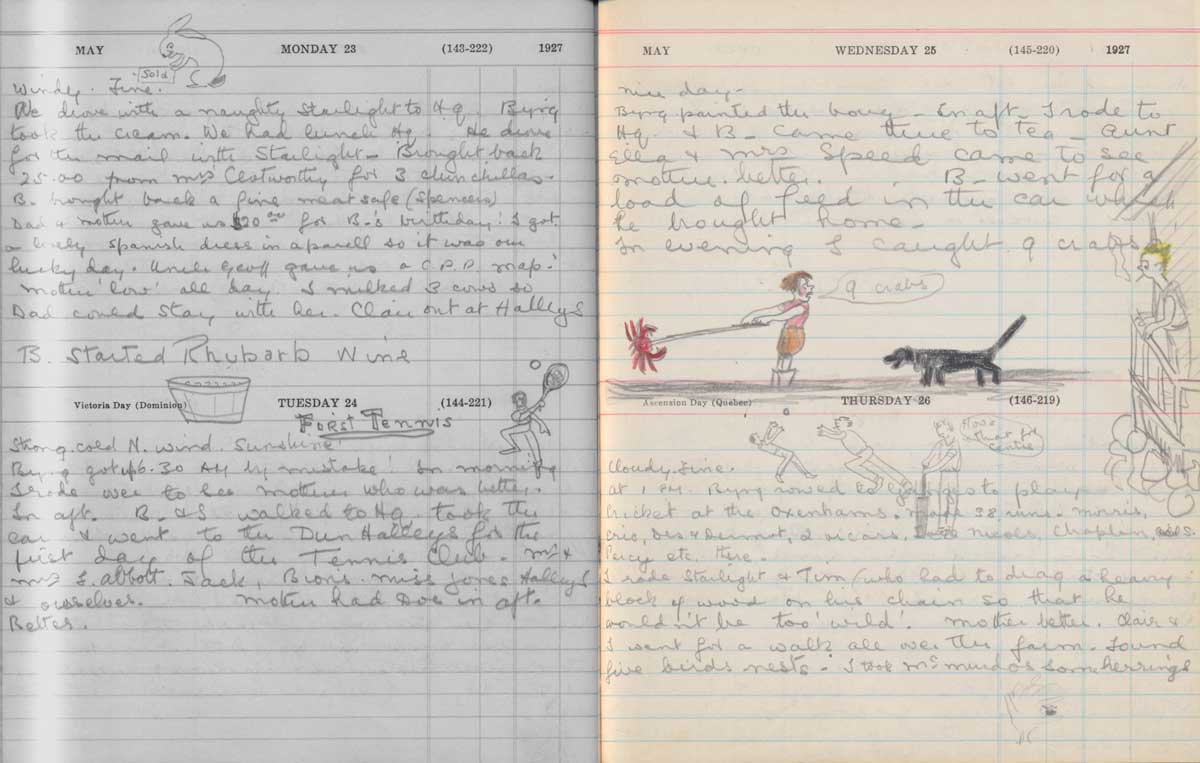 MAY MONDAY 23 (143-222) 1927
Sold
Windy. Fine.
We drove with a naughty Starlight to Hq. Byng
took the cream. We had lunch Hq. He drove
for the mail with Starlight - Brought back
25.00 from Mrs Clotworthy for 3 chinchillas.
B. bought back a fine meat safe (Spencers)
Dad & mother gave us $20.00 for B.'s birthday! I got
a lovely Spanish dress in a parcell so it was our
lucky day. Uncle Geoff gave us a C.P.R. map!
mother 'low' all day. I milked 3 cows so
Dad could stay with her. Clair out at Halleys
B. Started Rhubarb Wine
Victoria Day (Dominion) TUESDAY 24 (144-221)
First Tennis
Strong cold N. wind. Sunshine!
Byng got up 6.30 by mistake! In morning
I rode over to see mother who was better.
In aft. B. & I walked to Hq. took the
car & went to the Dun Halleys for the
first day of the Tennis Club. Mr &
Mrs E. Abbott. Jack, miss Jones Halleys
& ourselves. mother had Doc in aft.
Better.
MAY WEDNESDAY 25 (145-220) 1927
nice day-
Byng painted the buoy - In aft. I rode to
Hq. & B- came there to tea - Aunt
Ella & Mrs Speed came to see
mother. better. B- went for a
load of feed in the car which
he brought home-
In evening I caught 9 crabs
9 crabs
Ascension Day (Quebec) THURSDAY 26 (146-219)
Cloudy. Fine.
at 1 P.M. Byng rowed to to play
Cricket at the Oxenhams. made 38 runs. Morris,
Eric, Des & Dermot, 2 vicars, Nicols, Chaplain,
Percy etc. there.
I rode Starlight & Tim (who had to drag a heavy
block of wood on his chain so that he
wouldn't be too 'wild'. mother better. Clair &
I went for a walk all over the farm. Found
five birds nests - I took Mrs some herrings